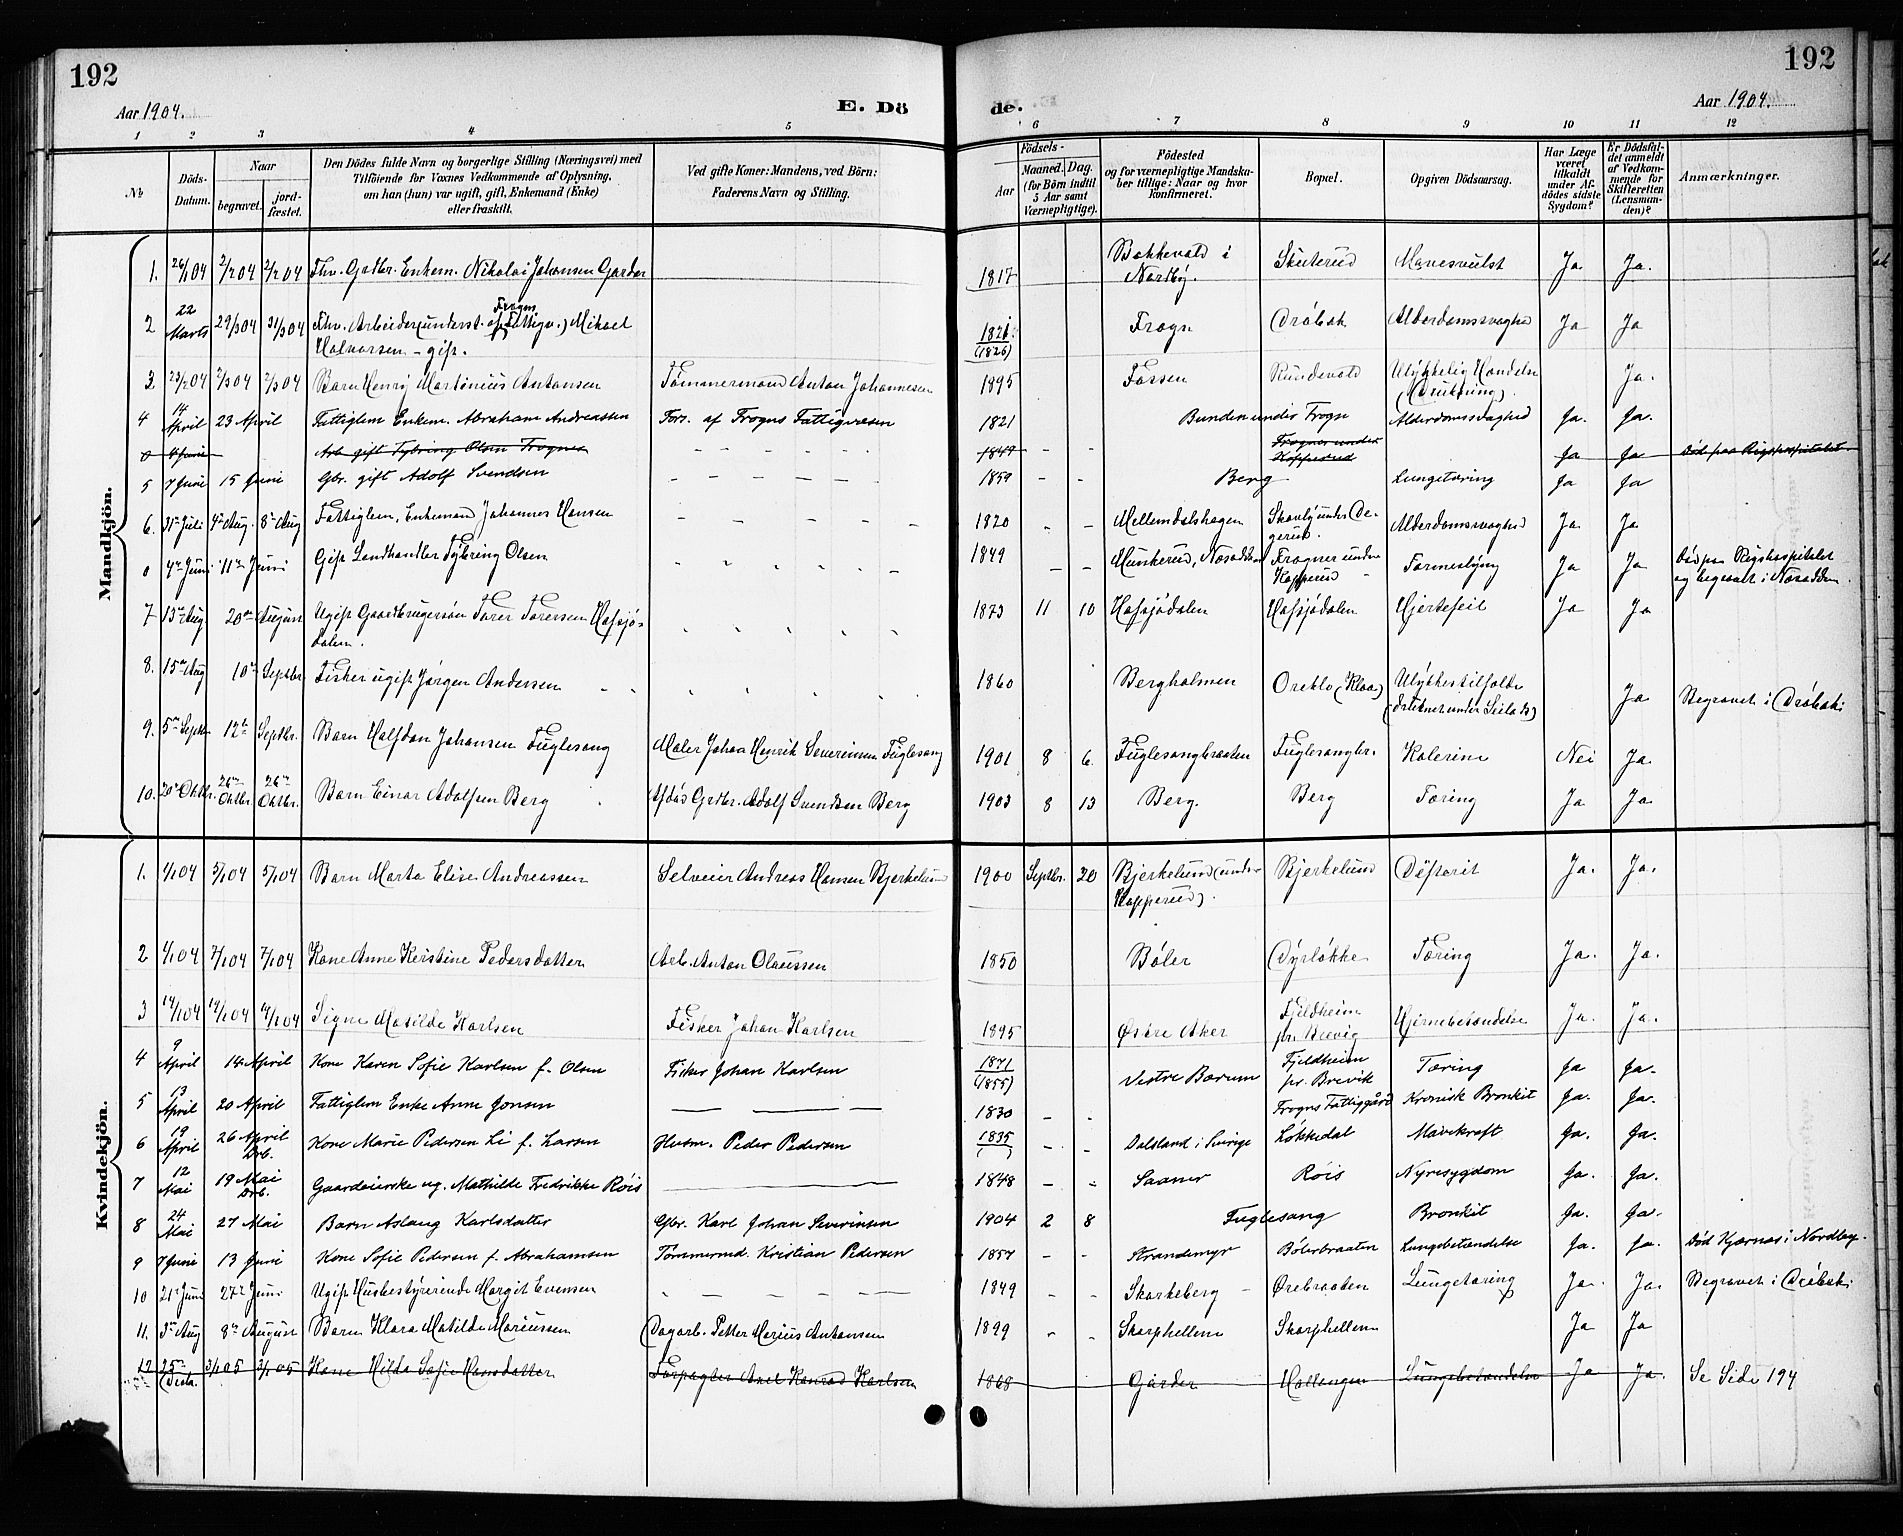 192
192
Aar 1904.
E. Dö
de.
Aar 1904.
1 2 3 4 5 6 7 8 9 10 11 12
№
Döds-Datum.
Naar
begravet.
jord-fæstet.
Den Dödes fulde Navn og borgerlige Stilling (Næringsvei) med
Tilföiende for Voxnes Vedkommende af Oplysning,
om han (hun) var ugift, gift, Enkemand (Enke)
eller fraskilt.
Ved gifte Koner: Mandens, ved Börn:
Faderens Navn og Stilling.
Födsels-
Aar
Maaned. Dag.
(for Börn indtil
5 Aar samt
Værnepligtige).
Födested
og for værnepligtige Mandska-
ber tillige: Naar og hvor
konfirmeret.
Bopæl.
Opgiven Dödsaarsag.
Har Læge
været
tilkaldt
under Af-
dödes sidste
Sygdom?
Er Dödsfal-
det anmeldt
af Vedkom-
mende for
Skifteretten
(Lensman-
den)?
Anmærkninger.
Mandkjön.
1. 26/1 04 2/2 04 2/2 04 Fhv. Grdbr. Enkem. Nikolai Johansen Garder 1817 Bakkevold i Nordby. Skuterud Mavesvulst Ja Ja.
2 22 Marts 29/3 04 31/3 04 Fhv. Arbeider (underst. af Frogns Fattigv.) Mikael Halvorsen - gift. 1821. (1826) Frogn Dröbak Alderdomssvaghed Ja Ja
3. 23/2 04 2/3 04 2/3 04 Barn Henry Martinius Antonsen Tömmermand Anton Johannesen 1895 Fossen Rundvold Ulykkelig Hændelse (Drukning). Ja.
4 14 April 23 April Fattiglem Enkem. Abraham Andreassen Fors. af Frogns Fattigvæsen 1821 Bunden under Frogn Alderdomssvaghed Ja. Ja.
0 4 Juni Arb. gift Tybring Olsen Frogner 1849 - - Frogner under Kopperud Ja Ja Död paa Rigshospitalet.
5 7 Juni 15 Juni Gbr. gift Adolf Svendsen 1859 - - Berg Lungetæring Ja Ja
6. 31te Juli 4de Aug. 8de Aug Fattiglem, Enkemand Johannes Hansen 1820 - - Mellemdalshagen Skovly under De-gerud. Alderdomssvaghed Ja Ja
0 4de Juni 11te Juni Gift Landhandler Tybring Olsen 1849 - - Munkerud, Nesodden Frogner under Kopperud Tarmeslyng Ja Ja Död paa Rigshospitalet og begravet i Nesodden.
7 13de Aug 20de August Ugift Gaardbrugersön Torer Torersen Hafsjö-dalen. 1873 11 10 Hafsjödalen Hafsjödalen Hjertefeil Ja Ja
8. 15de Aug 10de Septbr. Fisker ugift Jörgen Andersen 1860 Bergholmen Oreklo (Kloa) Ulykkestilfælde (druknet under Seilads) Ja Begravet i Dröbak.
9. 5te Septbr. 12te Septbr. Barn Halfdan Johansen Fuglesang Maler Johan Henrik Severinsen Fuglesang 1901 8 6. Fuglesangbraaten Fuglesangbr. Kolerine Nei Ja.
10. 20de Oktbr. 26de Oktbr. 26de Oktbr. Barn Einar Adolfsen Berg Afdös Grdbr. Adolf Svendsen Berg 1903 8 13 Berg. Berg Tæring Ja Ja.
Kvindekjön.
1. 1/1 04 5/1 04 5/1 04 Barn Marta Elise Andreassen Selveier Andreas Hansen Bjerkelund 1900 Septbr. 20 Bjerkelund (under Kopperud). Bjerkelund Difterit Ja. Ja.
2 1/1 04 7/1 04 7/1 04 Kone Anne Kirstine Pedersdatter Arb. Anton Olaussen 1850 Böler Dyrlökke Tæring Ja. Ja.
3 14/1 04 19/1 04 19/1 04 Signe Matilde Karlsen Fisker Johan Karlsen 1895 Østre Aker Fjeldheim pr. Brevig Hjernebetændelse Ja. Ja.
4 9 April 14 April Kone Karen Sofie Karlsen f. Olsen Fisker Johan Karlsen 1871 (1855) Vestre Bærum Fjeldheim pr. Brevik Tæring Ja Ja.
5 13 April 20 April Fattiglem Enke Anne Jonsen 1830 - - Frogns Fattiggård Kronisk Bronkit Ja. Ja.
6 19 April 26 April Drb. Kone Marie Pedersen Li f. Larsen Husm. Peder Pedersen 1835 ( ) - - Dalsland i Sverige Løkkedal Mavekræft Ja. Ja.
7 12 Mai 19 Mai Drb. Gaardeierske ug. Mathilde Fredrikke Röis 1848 - - Saaner Röis Nyresygdom Ja. Ja.
8 24 Mai 27 Mai Barn Aslaug Karlsdatter Gbr. Karl Johan Severinsen 1904 2 8 Fuglesang Bronkit Ja. Ja.
9 7 Juni 13 Juni Kone Sofie Pedersen f. Abrahamsen Tømmermd. Kristian Pedersen 1857 - - Strandemyr Bölerbraaten Lungebetændelse Ja. Ja. Död Kjærnes i Nordby.
10 21de Juni 27de Juni Ugift Husbestyrerinde Margit Evensen 1849 - - Skorkeberg Ørebraaten Lungetæring Ja. Ja. Begravet i Dröbak
11. 3de Aug 8de August Barn Klara Matilde Mariussen Dagarb. Petter Marius Antonsen 1899 - - Skorphellene Skorphellene Ja Ja
12 25de Decbr. 3/1 05 3/1 05 Kone Hilda Sofie Hansdatter Forpagter Axel Konrad Karlsen 1868 Garder Hallangen Lungebetændelse Ja Ja. Se Side 194